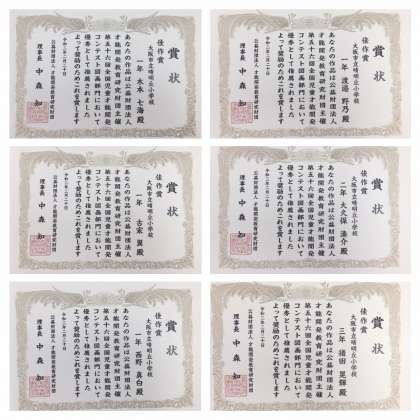 賞状
佳作賞
大阪市立晴明丘小学校
一年 末永
あなたの作品は公益財団法人
才能開発教育研究財団主催
第五十六回全国児童才能開発
コンテスト図画部門において
優秀として推薦されました
よって奨励のためこれを賞します
令和二年二月二十日
公益財団法人 才能開発教育研究財団
理事長 中森 知
賞状
佳作賞
大阪市立晴明丘小学校
一年 渡邉 野乃
あなたの作品は公益財団法人
才能開発教育研究財団主催
第五十六回全国児童才能開発
コンテスト図画部門において
優秀として推薦されました
よって奨励のためこれを賞します
令和二年二月二十日
公益財団法人 才能開発教育研究財団
理事長 中森 知
賞状
佳作賞
大阪市立晴明丘小学校
古家 翼
あなたの作品は公益財団法人
才能開発教育研究財団主催
第五十六回全国児童才能開発
コンテスト図画部門において
優秀として推薦されました
よって奨励のためこれを賞します
令和二年二月二十日
公益財団法人 才能開発教育研究財団
理事長 中森 知
賞状
佳作賞
大阪市立晴明丘小学校
二年 大久保 湊介
あなたの作品は公益財団法人
才能開発教育研究財団主催
第五十六回全国児童才能開発
コンテスト図画部門において
優秀として推薦されました
よって奨励のためこれを賞します
令和二年二月二十日
公益財団法人 才能開発教育研究財団
理事長 中森 知
賞状
佳作賞
大阪市立晴明丘小学校
西野 真白
あなたの作品は公益財団法人
才能開発教育研究財団主催
第五十六回全国児童才能開発
コンテスト図画部門において
優秀として推薦されました
よって奨励のためこれを賞します
令和二年二月二十日
公益財団法人 才能開発教育研究財団
理事長 中森 知
賞状
佳作賞
大阪市立晴明丘小学校
三年 猪田 星輝
あなたの作品は公益財団法人
才能開発教育研究財団主催
第五十六回全国児童才能開発
コンテスト図画部門において
優秀として推薦されました
よって奨励のためこれを賞します
令和二年二月二十日
公益財団法人 才能開発教育研究財団
理事長 中森 知